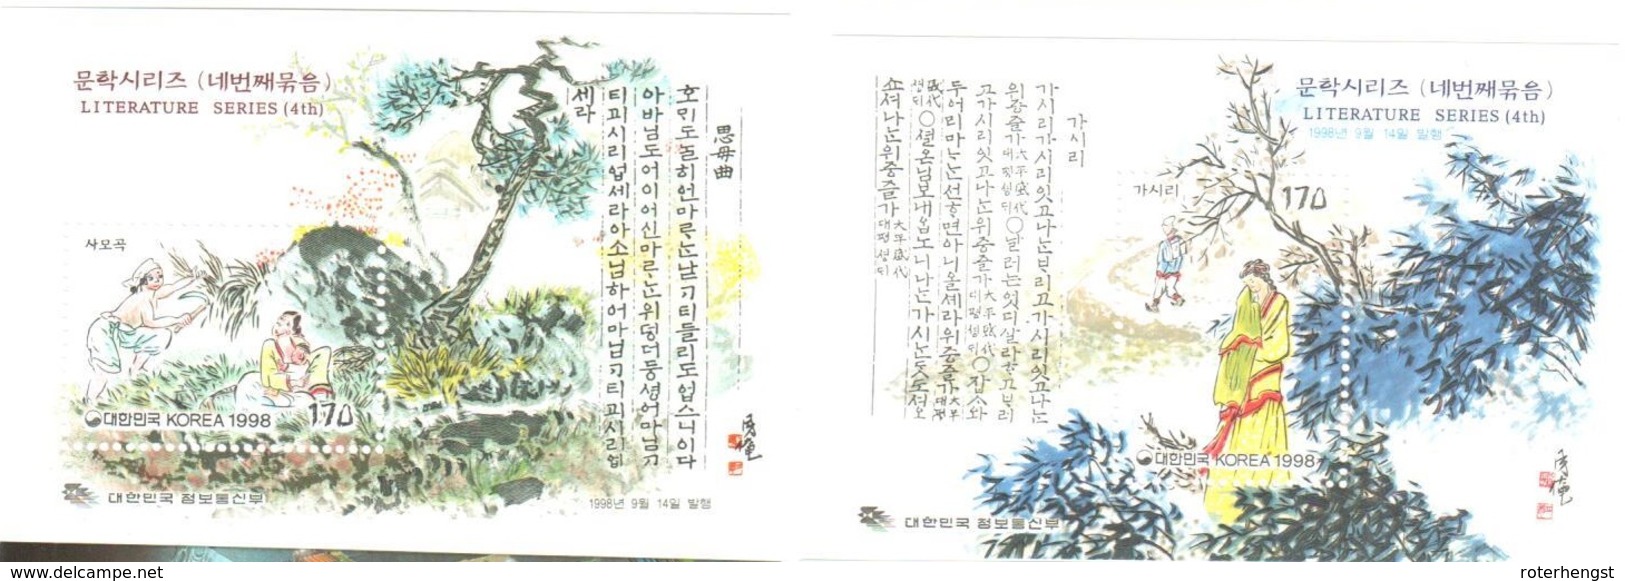 문학시리즈 (네번째묶음)
LITERATURE SERIES (4th)
思母曲
호ᄆᆡ도ᄂᆞᆯ히언마ᄅᆞᄂᆞᆫ낟ᄀᆞ티들리도업스니이다
아바님도어이어신마ᄅᆞᄂᆞᆫ위덩더둥셩어마님ᄀᆞ
티괴시리업세라아소님하어마님ᄀᆞ티괴시리업
세라
사모곡
대한민국 KOREA 1998
170
대한민국 정보통신부
1998년 9월 14일 발행
문학시리즈 (네번째묶음)
LITERATURE SERIES (4th)
1998년 9월 14일 발행
가시리
가시리가시리잇고나ᄂᆞᆫᄇᆞ리고가시리잇고나ᄂᆞᆫ
위증즐가大平盛代대평셩ᄃᆡ○날러는엇디살라ᄒᆞ고ᄇᆞ리
고가시리잇고나ᄂᆞᆫ위증즐가大平盛代대평셩ᄃᆡ○잡ᄉᆞ와
두어리마ᄂᆞᄂᆞᆫ선ᄒᆞ면아니올셰라위증즐가大平대평
盛代셩ᄃᆡ○셜온님보내ᄋᆞᆸ노니나ᄂᆞᆫ가시ᄂᆞᆫᄃᆞᆺ도셔오
쇼셔나ᄂᆞᆫ위증즐가大平盛代대평셩ᄃᆡ
가시리
170
대한민국 KOREA 1998
대한민국 정보통신부
www.delcampe.net
roterhengst